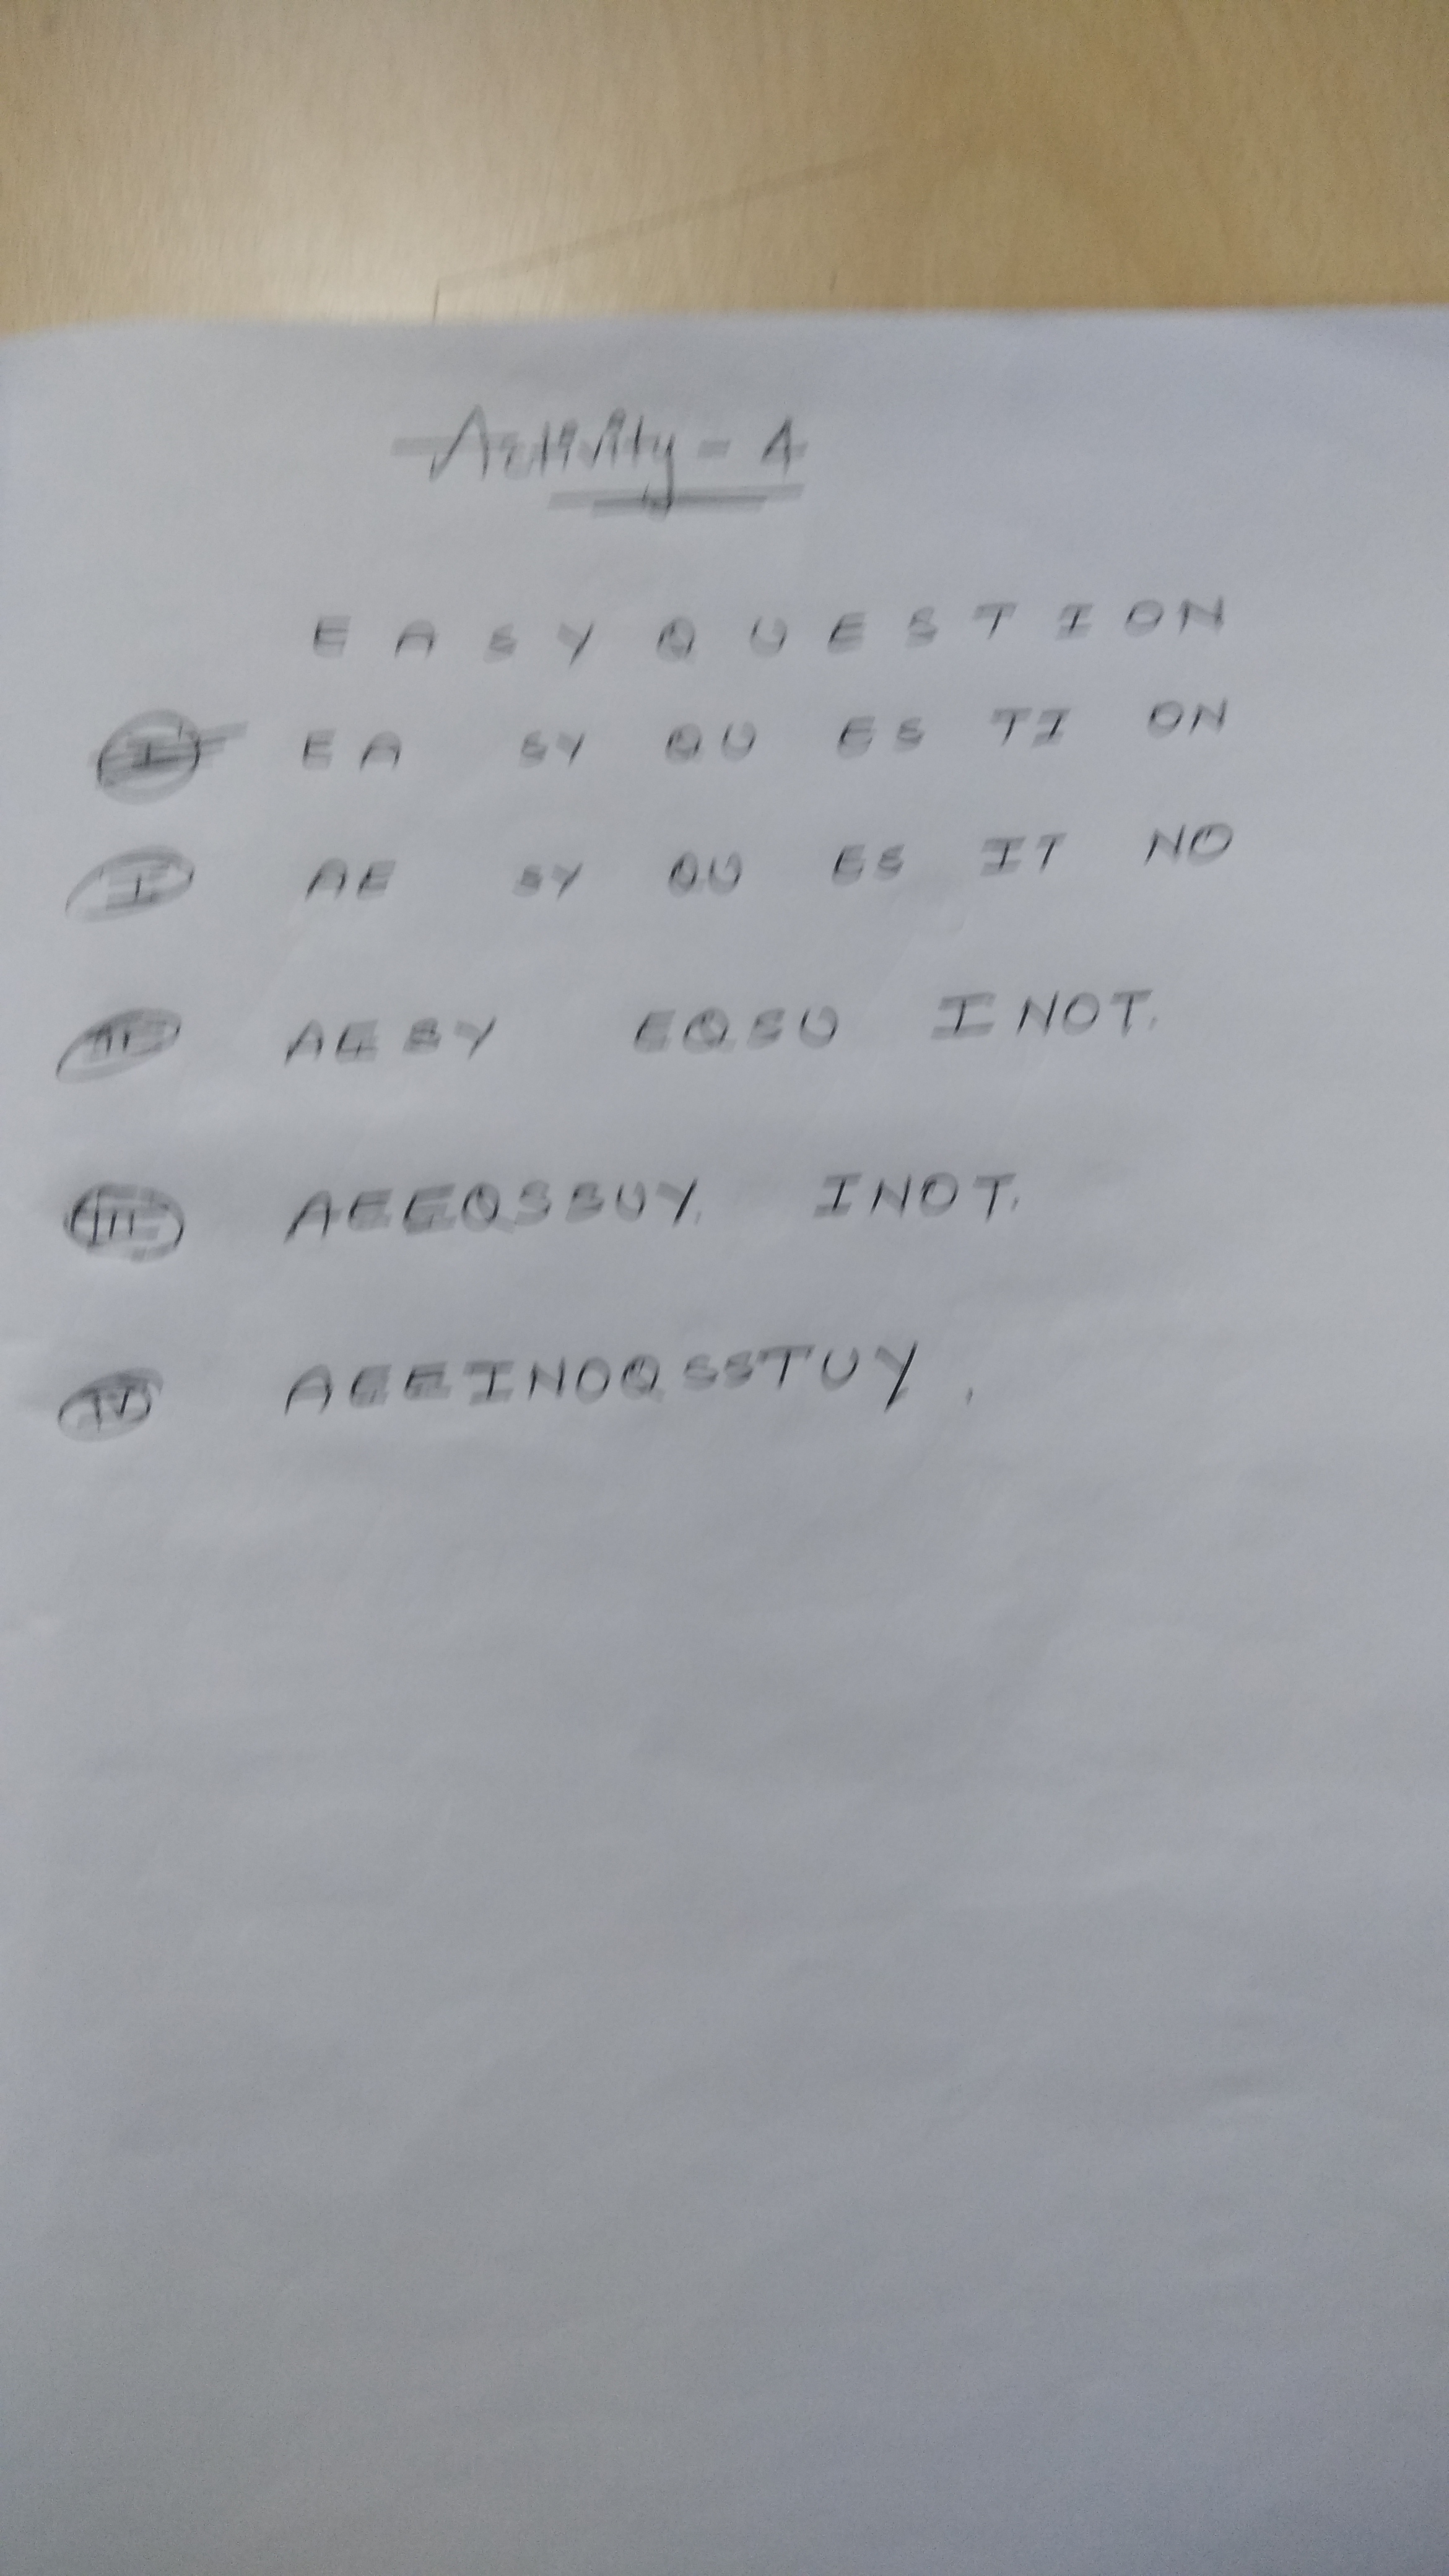 Activity - 4
E A S Y Q U E S T I O N
I EA SY QU ES TI ON
I AE SY QU ES IT NO
II AESY EQSU INOT.
III AEEQSSUY. INOT.
IV AEEINOQSSTUY.